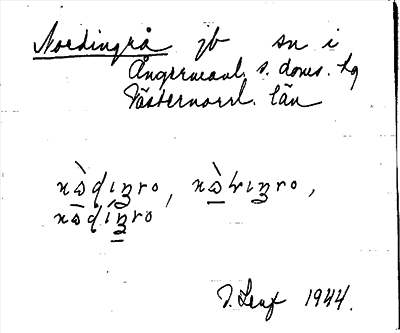 Nordingrå jb sn i
Ångermanl. s. doms. hg
Västernorrl. län
nὼɖɩŋro, nὼrɩŋro,
nὼɖíŋro
J. Leaf 1944.